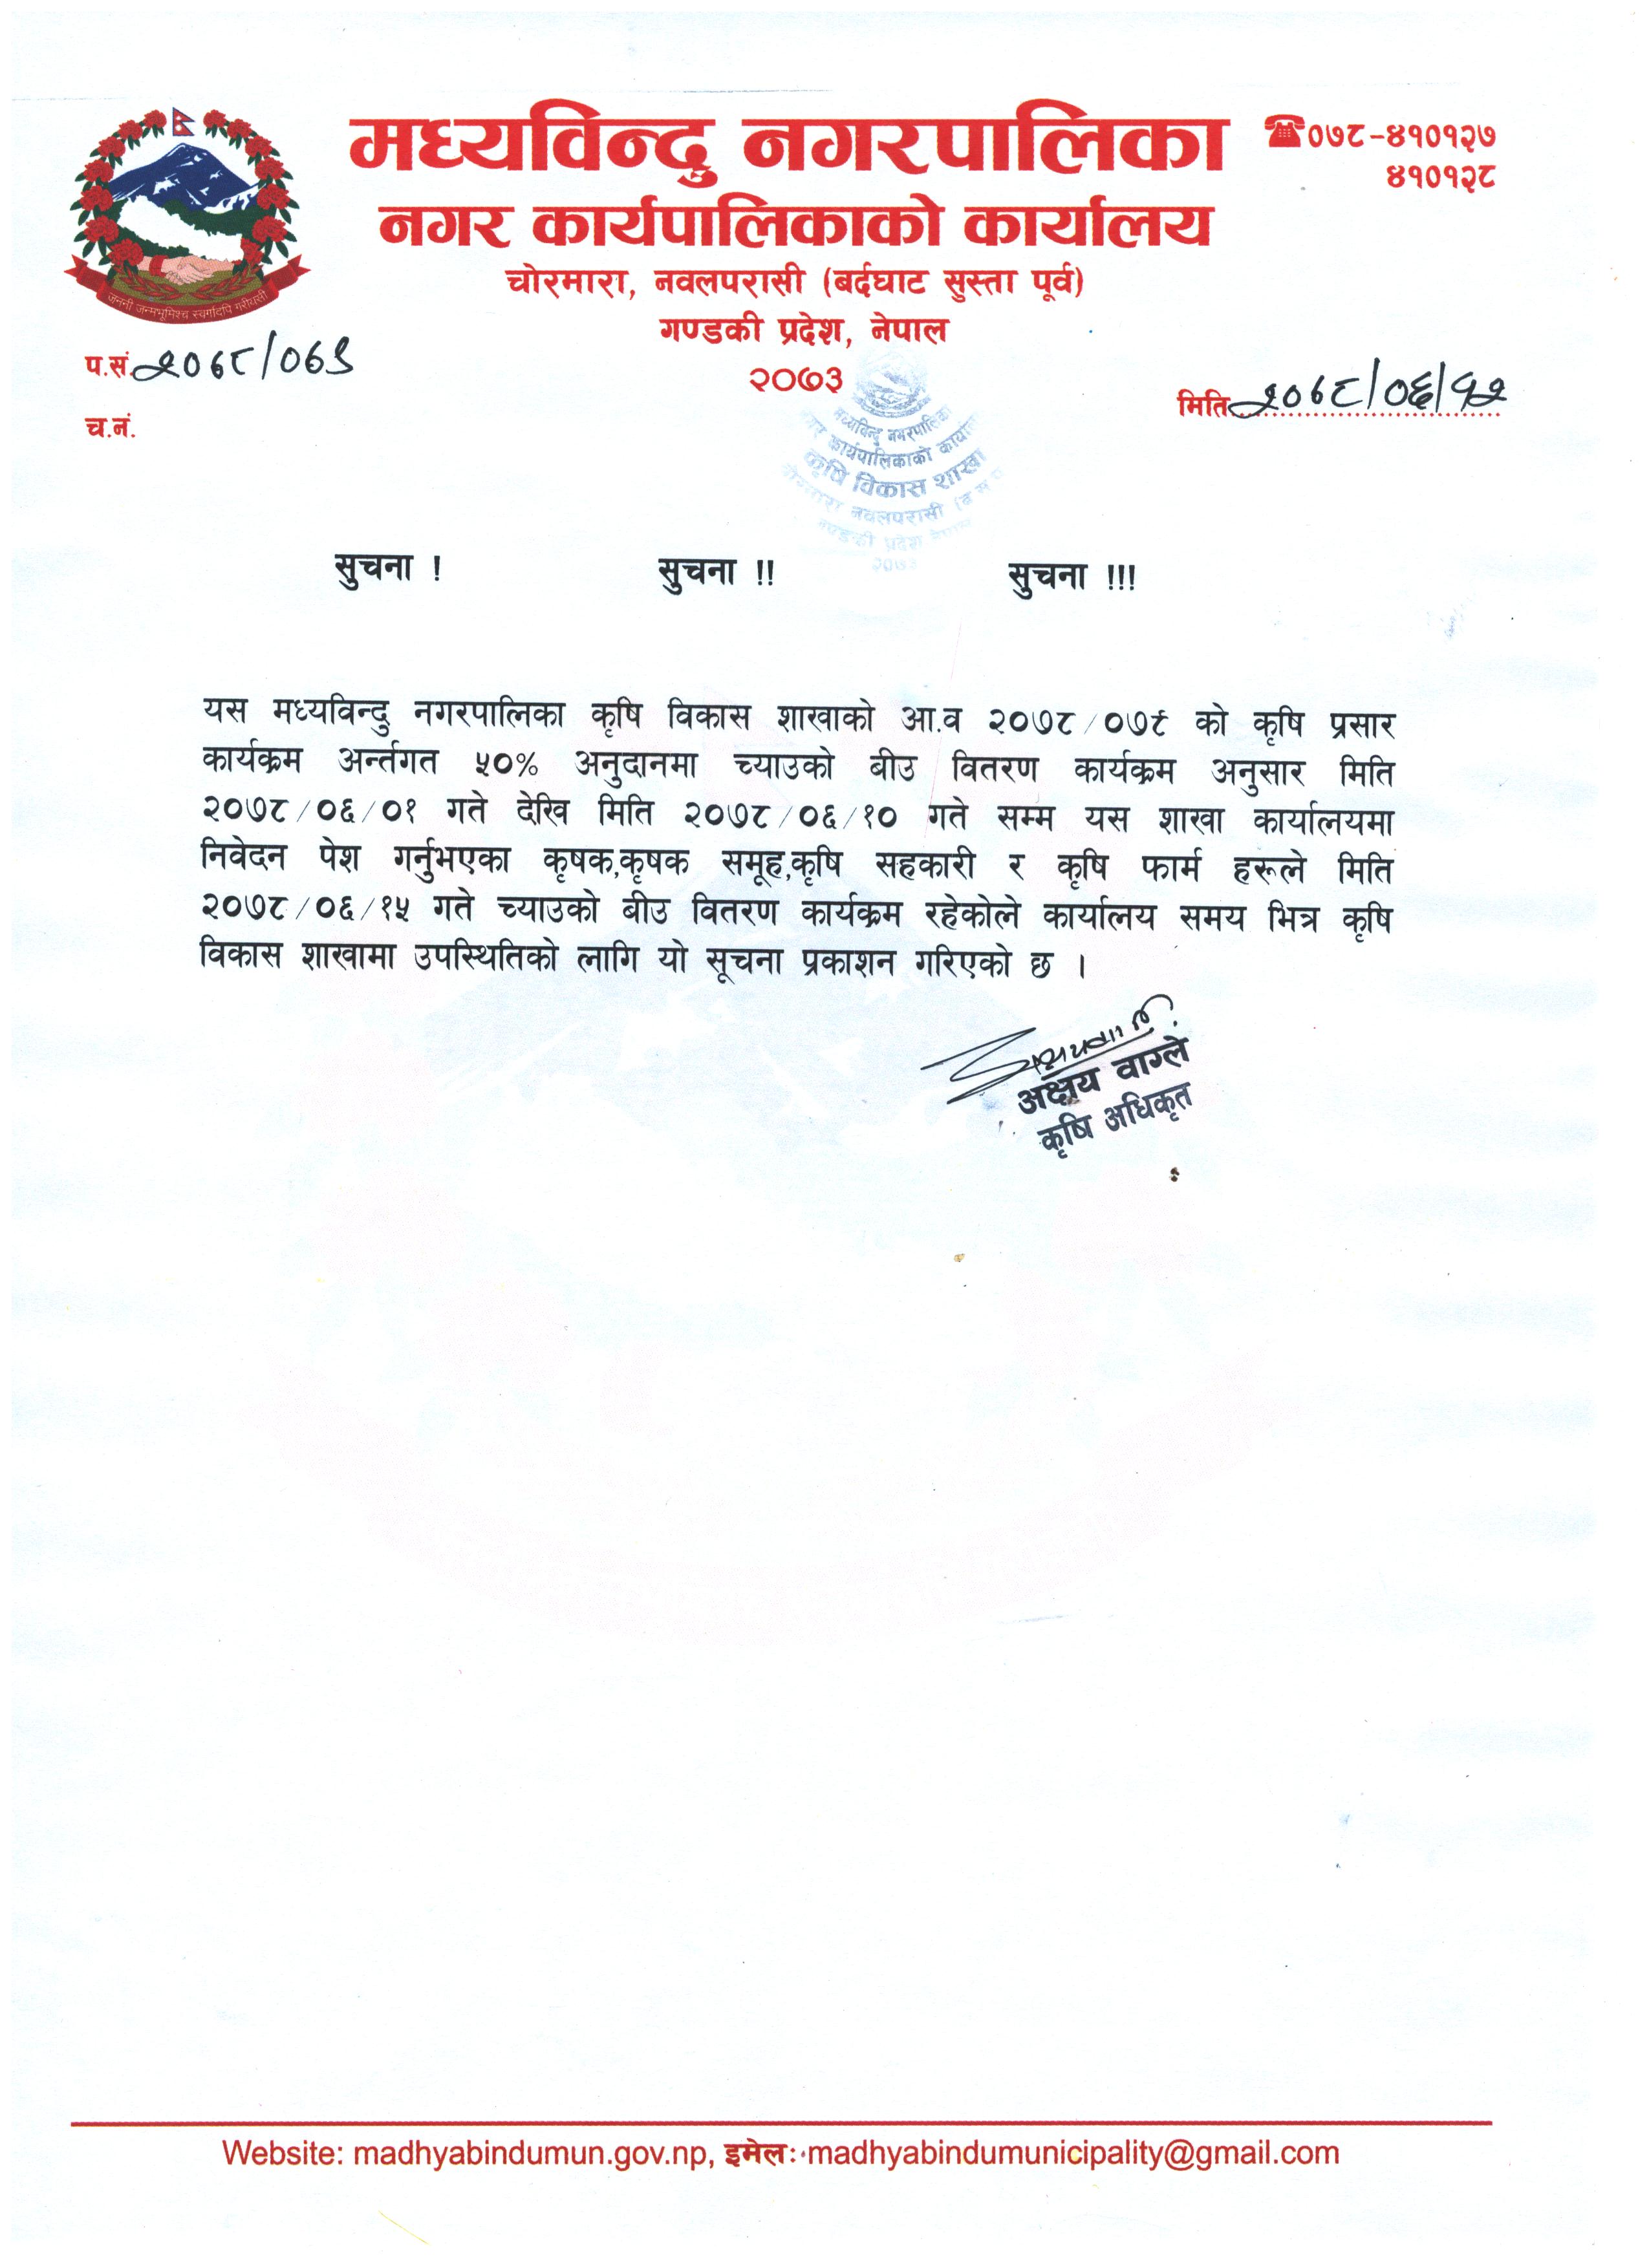 मध्यविन्दु नगरपालिका
नगर कार्यपालिकाको कार्यालय
चोरमारा, नवलपरासी (बर्दघाट सुस्ता पूर्व)
गण्डकी प्रदेश, नेपाल
२०७३
☎०७८-४१०१२७
४१०१२८
जननी जन्मभूमिश्च स्वर्गादपि गरीयसी
प.सं. २०७८/०७९
च.नं.
मिति २०७८/०६/१२
मध्यविन्दु नगरपालिका
नगर कार्यपालिकाको कार्यालय
कृषि विकास शाखा
चोरमारा नवलपरासी
गण्डकी प्रदेश नेपाल
२०७३
सुचना ! सुचना !! सुचना !!!
यस मध्यविन्दु नगरपालिका कृषि विकास शाखाको आ.व २०७८/०७९ को कृषि प्रसार
कार्यक्रम अर्न्तगत ५०% अनुदानमा च्याउको बीउ वितरण कार्यक्रम अनुसार मिति
२०७८/०६/०१ गते देखि मिति २०७८/०६/१० गते सम्म यस शाखा कार्यालयमा
निवेदन पेश गर्नुभएका कृषक,कृषक समूह,कृषि सहकारी र कृषि फार्म हरूले मिति
२०७८/०६/१५ गते च्याउको बीउ वितरण कार्यक्रम रहेकोले कार्यालय समय भित्र कृषि
विकास शाखामा उपस्थितिको लागि यो सूचना प्रकाशन गरिएको छ ।
अक्षय वाग्ले
कृषि अधिकृत
Website: madhyabindumun.gov.np, इमेलः madhyabindumunicipality@gmail.com